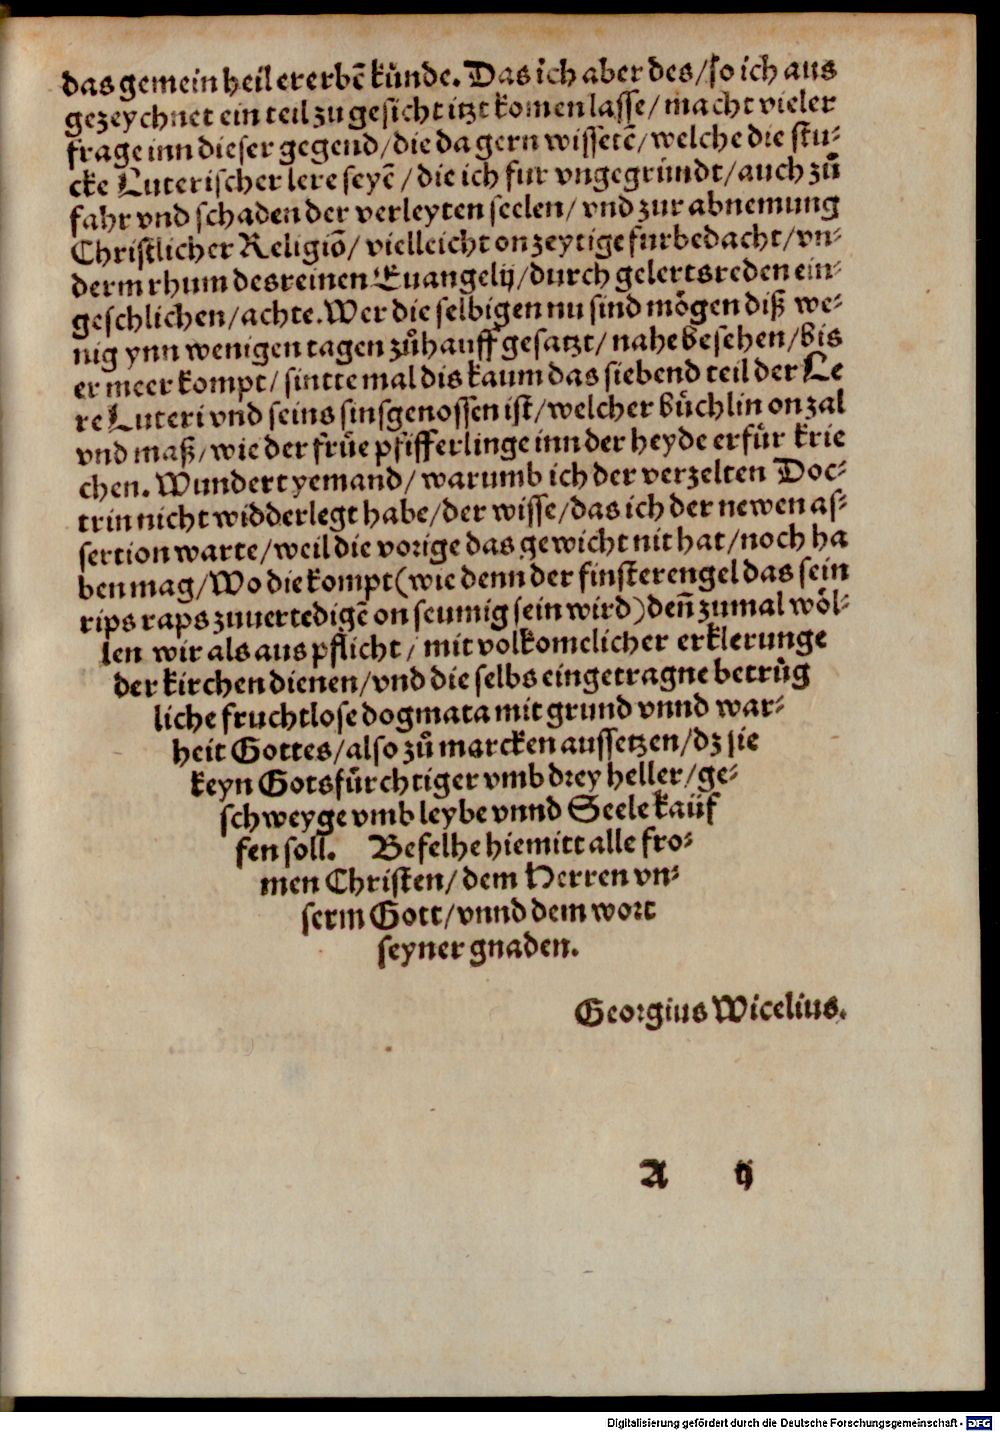 das gemein heil ererbē kůnde. Das ich aber des/ so ich aus
gezeychnet ein teil zu gesicht itzt komen lasse/ macht vieler
frage inn dieser gegend/ die da gern wissetē/ welche die stu-
cke Luterischer lere seyē/ die ich fur vngegründt/ auch zů
fahr vnd schaden der verleyten seelen/ vnd zur abnemung
Christlicher Religiō/ vielleicht on zeytige furbedacht/ vn-
derm rhum des reinen Euangelij/ durch gelerts reden ein-
geschlichen/ achte. Wer die selbigen nu sind mögen diß we-
nig ynn wenigen tagen zůhauff gesatzt/ nahe besehen/ bis
er meer kompt/ sinttemal dis kaum das siebend teil der Le
re Luteri vnd seins sinsgenossen ist/ welcher bůchlin on zal
vnd maß/ wie der frůe pfifferlinge inn der heyde erfůr krie
chen. Wundert yemand/ warumb ich der verzelten Doc-
trin nicht widderlegt habe/ der wisse/ das ich der newen as-
sertion warte/ weil die vorige das gewicht nit hat/ noch ha
ben mag/ Wo die kompt (wie denn der finster engel das sein
rips raps zuuertedigē on seumig sein wird) den̄ zumal wöl-
len wir als aus pflicht/ mit volkomelicher erklerunge
der kirchen dienen/ vnd die selbs eingetragne betrůg
liche fruchtlose dogmata mit grund vnnd war-
heit Gottes/ also zů marcken aussetzen/ dz sie
keyn Gotsfůrchtiger vmb drey heller/ ge-
schweyge vmb leybe vnnd Seele kaüf
fen soll. Befelhe hiemitt alle fro-
men Christen/ dem Herren vn-
serm Gott/ vnnd dem wort
seyner gnaden.
Georgius Wicelius.
A ij
Digitalisierung gefördert durch die Deutsche Forschungsgemeinschaft - DFG